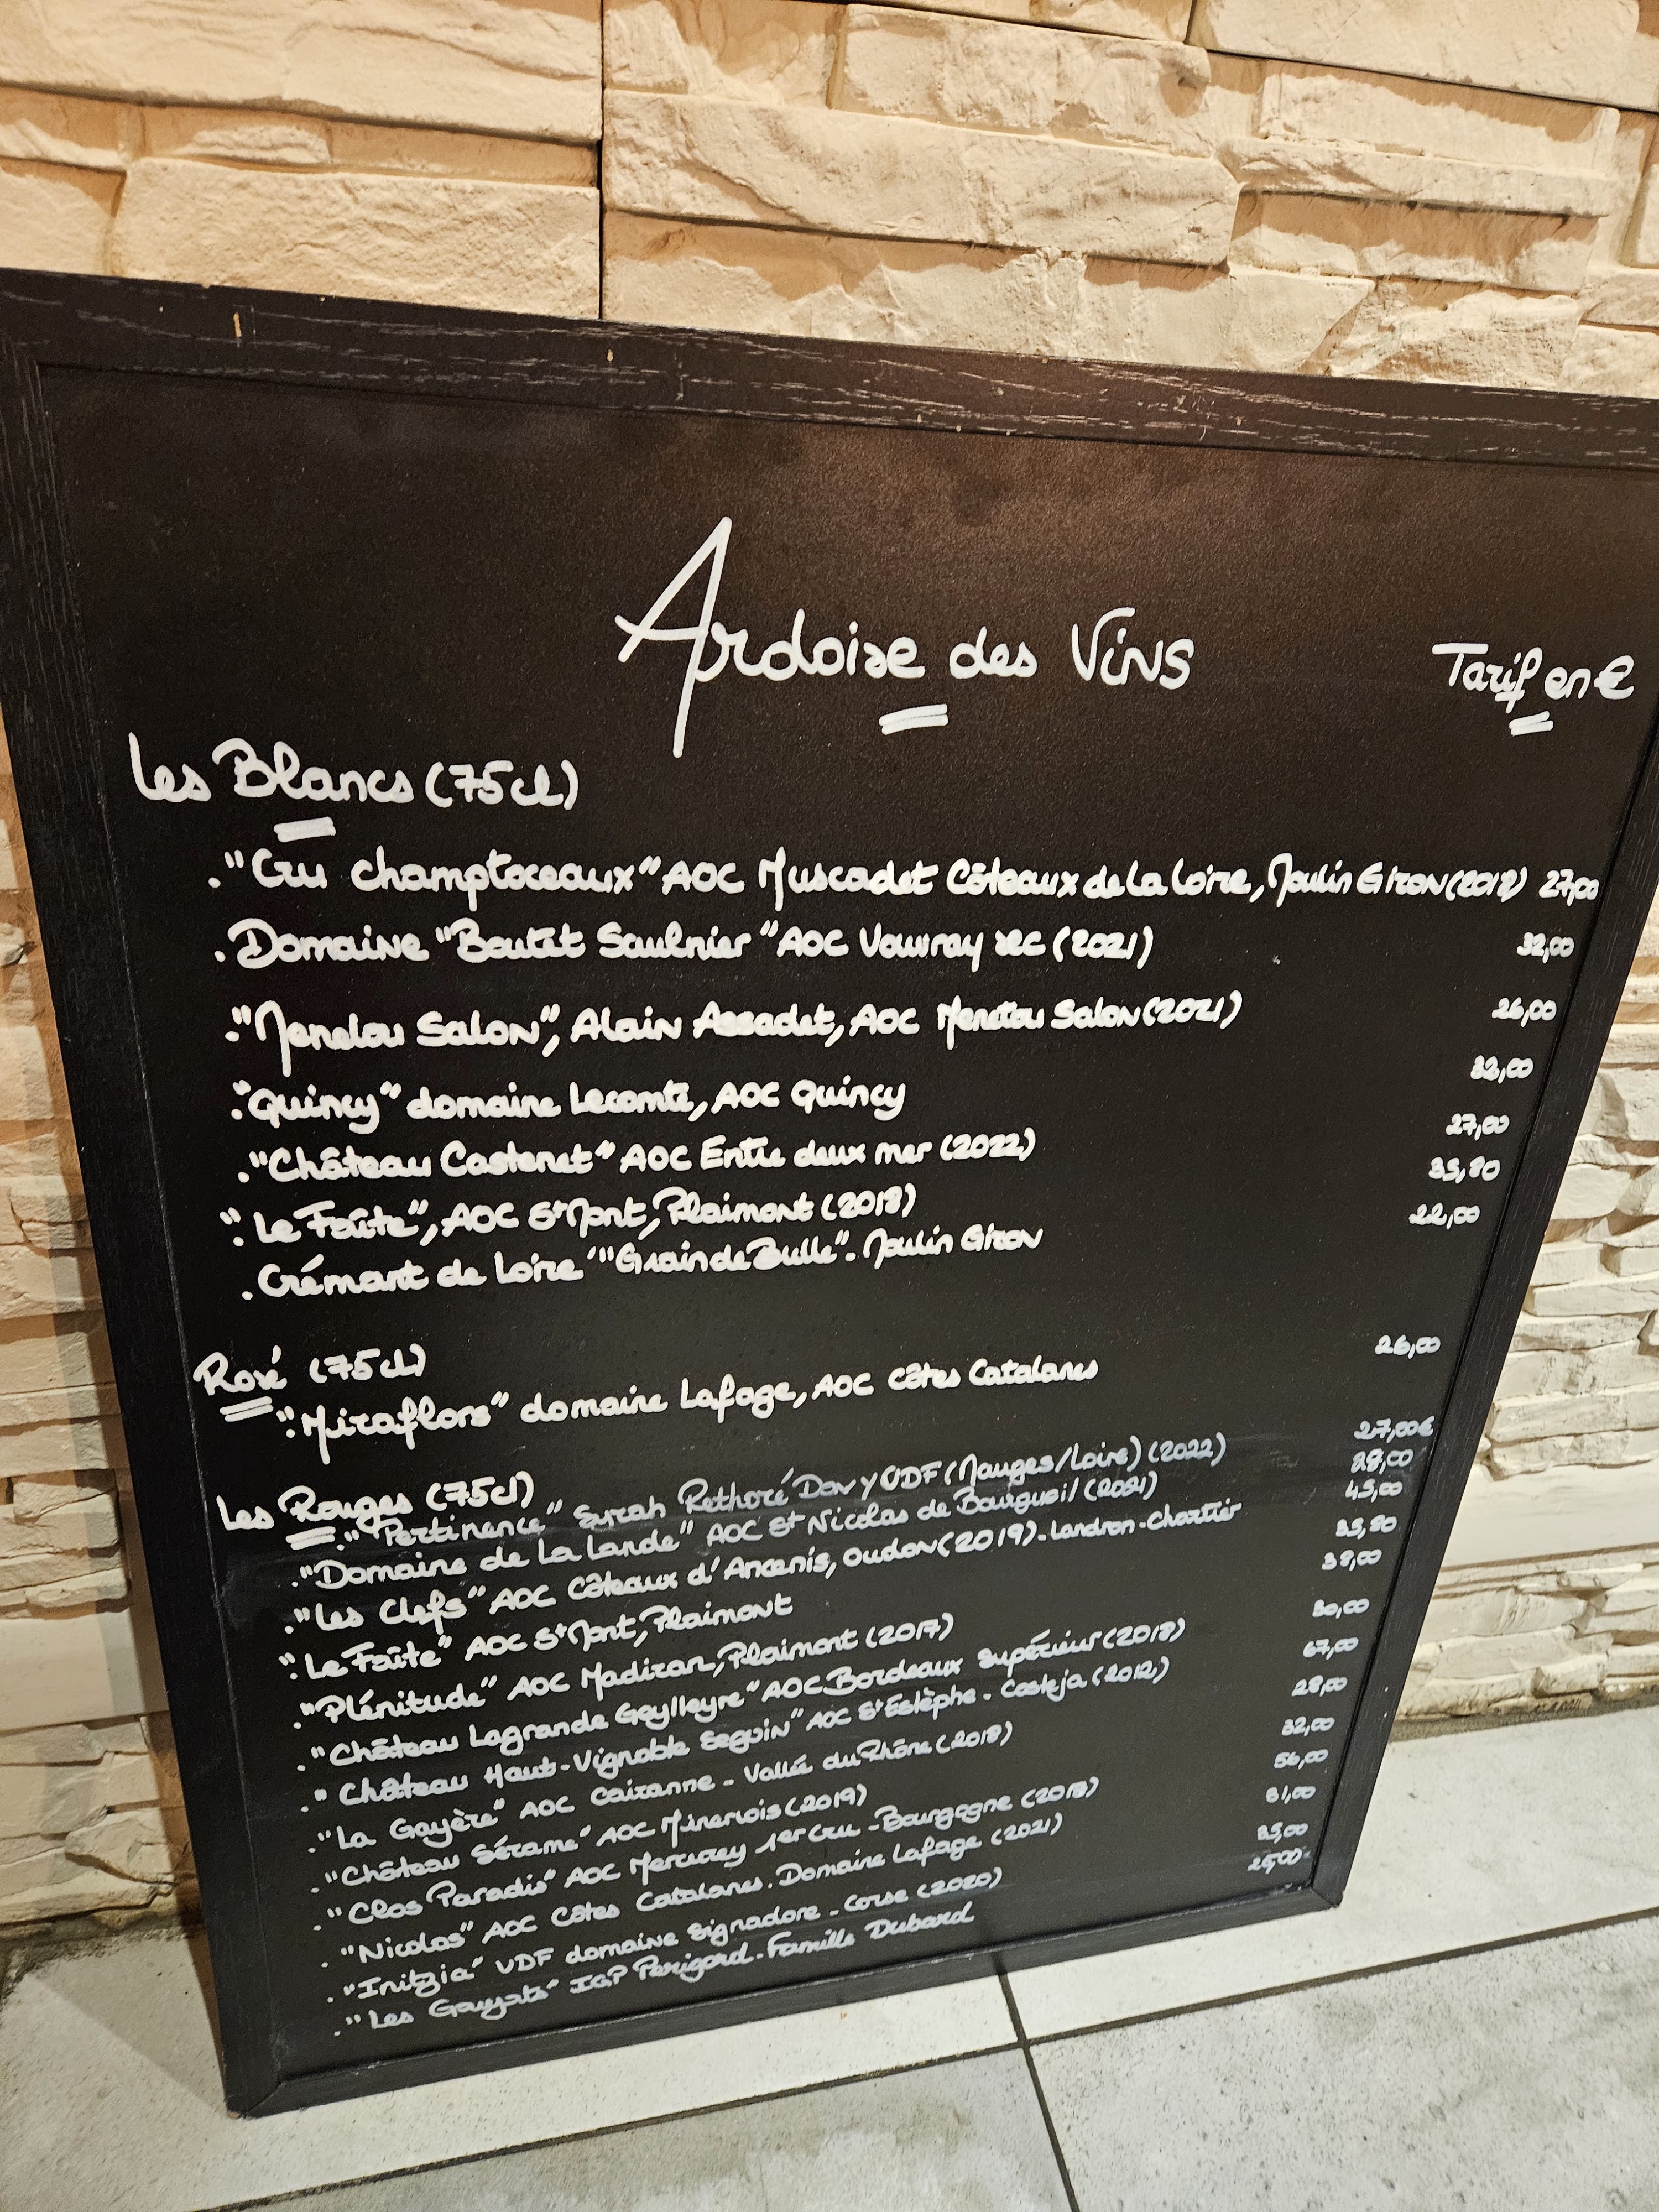 Ardoise des Vins
Tarif en €
Les Blancs (75cl)
. "Cru Champtoceaux" AOC Muscadet Côteaux de La Loire, Moulin Giron (2018) 27,00
. Domaine "Boutet Saulnier" AOC Vouvray sec (2021) 32,00
. "Menetou Salon", Alain Assadet, AOC Menetou Salon (2021) 26,00
. "Quincy" domaine Lecomte, AOC Quincy 32,00
. "Château Castenet" AOC Entre deux mer (2022) 27,00
. "Le Faîte", AOC St Mont, Plaimont (2018) 35,80
. Crémant de Loire "Grain de Bulle". Moulin Giron 22,00
Rosé (75cl)
. "Miraflors" domaine Lafage, AOC Côtes Catalanes 26,00
Les Rouges (75cl)
. "Pertinence" Syrah Rethoré Davy VDF (Mauges/Loire) (2022) 27,00€
. "Domaine de La Lande" AOC St Nicolas de Bourgueil (2021) 28,00
. "Les Clefs" AOC Côteaux d'Ancenis, Oudon (2019). Landron-Chartier 45,00
. "Le Faîte" AOC St Mont, Plaimont 35,80
. "Plénitude" AOC Madiran, Plaimont (2017) 38,00
. "Château Lagrande Gaylleyre" AOC Bordeaux Supérieur (2018) 30,00
. "Château Haut-Vignoble Seguin" AOC St Estèphe. Casteja (2012) 67,00
. "La Gayère" AOC Cairanne - Vallée du Rhône (2018) 28,00
. "Château Sérame" AOC Minervois (2019) 32,00
. "Clos Paradis" AOC Mercurey 1er Cru - Bourgogne (2018) 56,00
. "Nicolas" AOC Côtes Catalanes. Domaine Lafage (2021) 31,00
. "Initzia" VDF domaine Signadore - Corse (2020) 35,00
. "Les" IGP Périgord. Famille Dubard 25,00